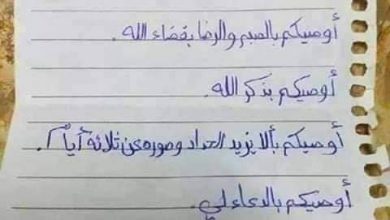 أوصيكم بالصبر والرضا بقضاء الله .
أوصيكم بذكر الله .
أوصيكم بألا يزيد الحداد وصوره عن ثلاثة أيام .
أوصيكم بالدعاء لي .